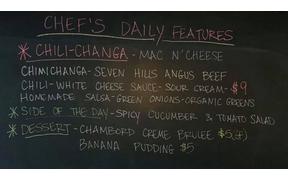 CHEF'S DAILY FEATURES
* CHILI-CHANGA - MAC N' CHEESE
CHIMICHANGA - SEVEN HILLS ANGUS BEEF
CHILI - WHITE CHEESE SAUCE - SOUR CREAM - $9
HOMEMADE SALSA - GREEN ONIONS - ORGANIC GREENS
* SIDE OF THE DAY - SPICY CUCUMBER & TOMATO SALAD
* DESSERT - CHAMBORD CREME BRULEE $5 (gf)
BANANA PUDDING $5